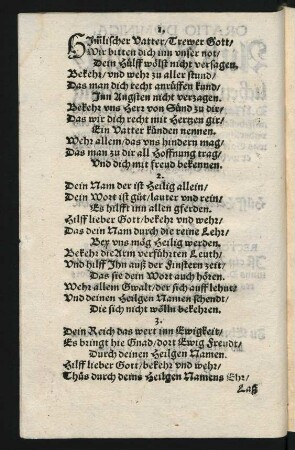 1.
HJm̃lischer Vatter/ Trewer Gott/
Wir bitten dich inn vnser not/
Dein Hülff wöllst nicht versagen.
Bekehr/ vnd wehr zu aller stund/
Das man dich recht anrüffen kund/
Jnn Ängsten nicht verzagen.
Bekehr vns Herr von Sünd zu dir/
Das wir dich recht mit Hertzen gir/
Ein Vatter künden nennen.
Wehr allem/ das vns hindern mag/
Das man zu dir all Hoffnung trag/
Vnd dich mit freud bekennen.
2.
Dein Nam der ist Heilig allein/
Dein Wort ist güt/ lauter vnd rein/
Es hilfft inn allen gferden.
Hilf lieber Gott/ bekehr vnd wehr/
Das dein Nam durch die reine Lehr/
Bey vns mög Heilig werden.
Bekehr die Arm verführten Leuth/
Vnd hilff Jhn auß der Finstern zeit/
Das sie dein Wort auch hören.
Wehr allem Gwalt/ der sich auff lehnt/
Vnd deinen Heilgen Namen schendt/
Die sich nicht wölln bekehren.
3.
Dein Reich das wert inn Ewigkeit/
Es bringt hie Gnad/ dort Ewig Freudt/
Durch deinen Heilgen Namen.
Hilff lieber Gott/ bekehr vnd wehr/
Thüs durch deins Heilgen Namens Ehr/
Laß